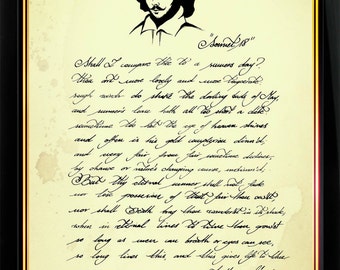 "Sonnet 18"
Shall I compare thee to a summers day?
thou art more lovely and more temperate
rough winds do shake the darling buds of May,
and summer's lease hath all too short a date
sometime too hot the eye of heaven shines
and often is his gold complexion dimm'd,
and every fair from fair sometime declines,
by chance or nature's changing course, untrimm'd;
But thy eternal summer shall not fade
nor possession of that fair thou owest
nor shall Death brag thou wander'st in its shade,
when in eternal lines to time thou growest
so long as men can breathe or eyes can see,
so long lives this, and this gives life to thee